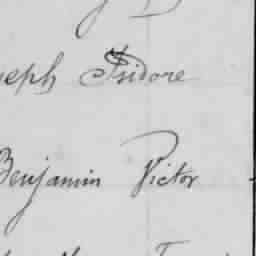 seph Isidore
Benjamin Victor